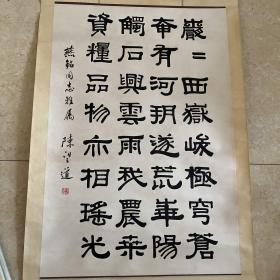 巖〻西嶽峻極穹蒼
奄有河朔遂荒華陽
觸石興雲雨我農桑
資糧品物亦相瑤光
燕銘同志雅屬 陳望道